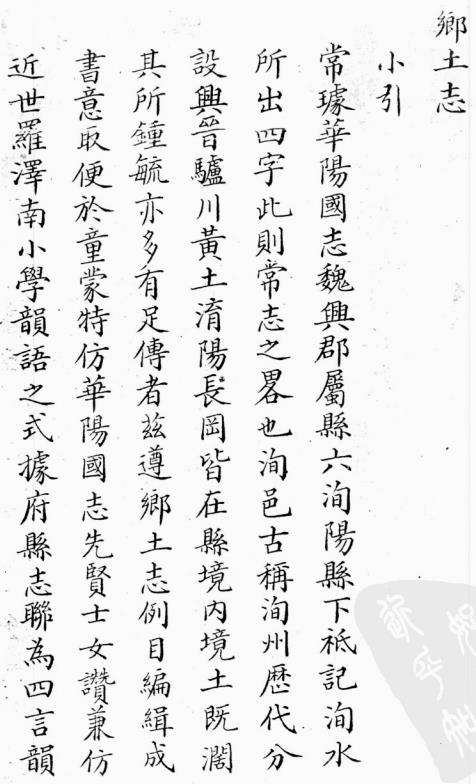 鄉土志
小引
常璩華陽國志魏興郡屬縣六洵陽縣下祗記洵水
所出四字此則常志之畧也洵邑古稱洵州歷代分
設興晉驢川黃土淯陽長岡皆在縣境內境土既濶
其所鍾毓亦多有足傳者茲遵鄉土志例目編緝成
書意取便於童蒙特仿華陽國志先賢士女讚兼仿
近世羅澤南小學韻語之式據府縣志聯為四言韻